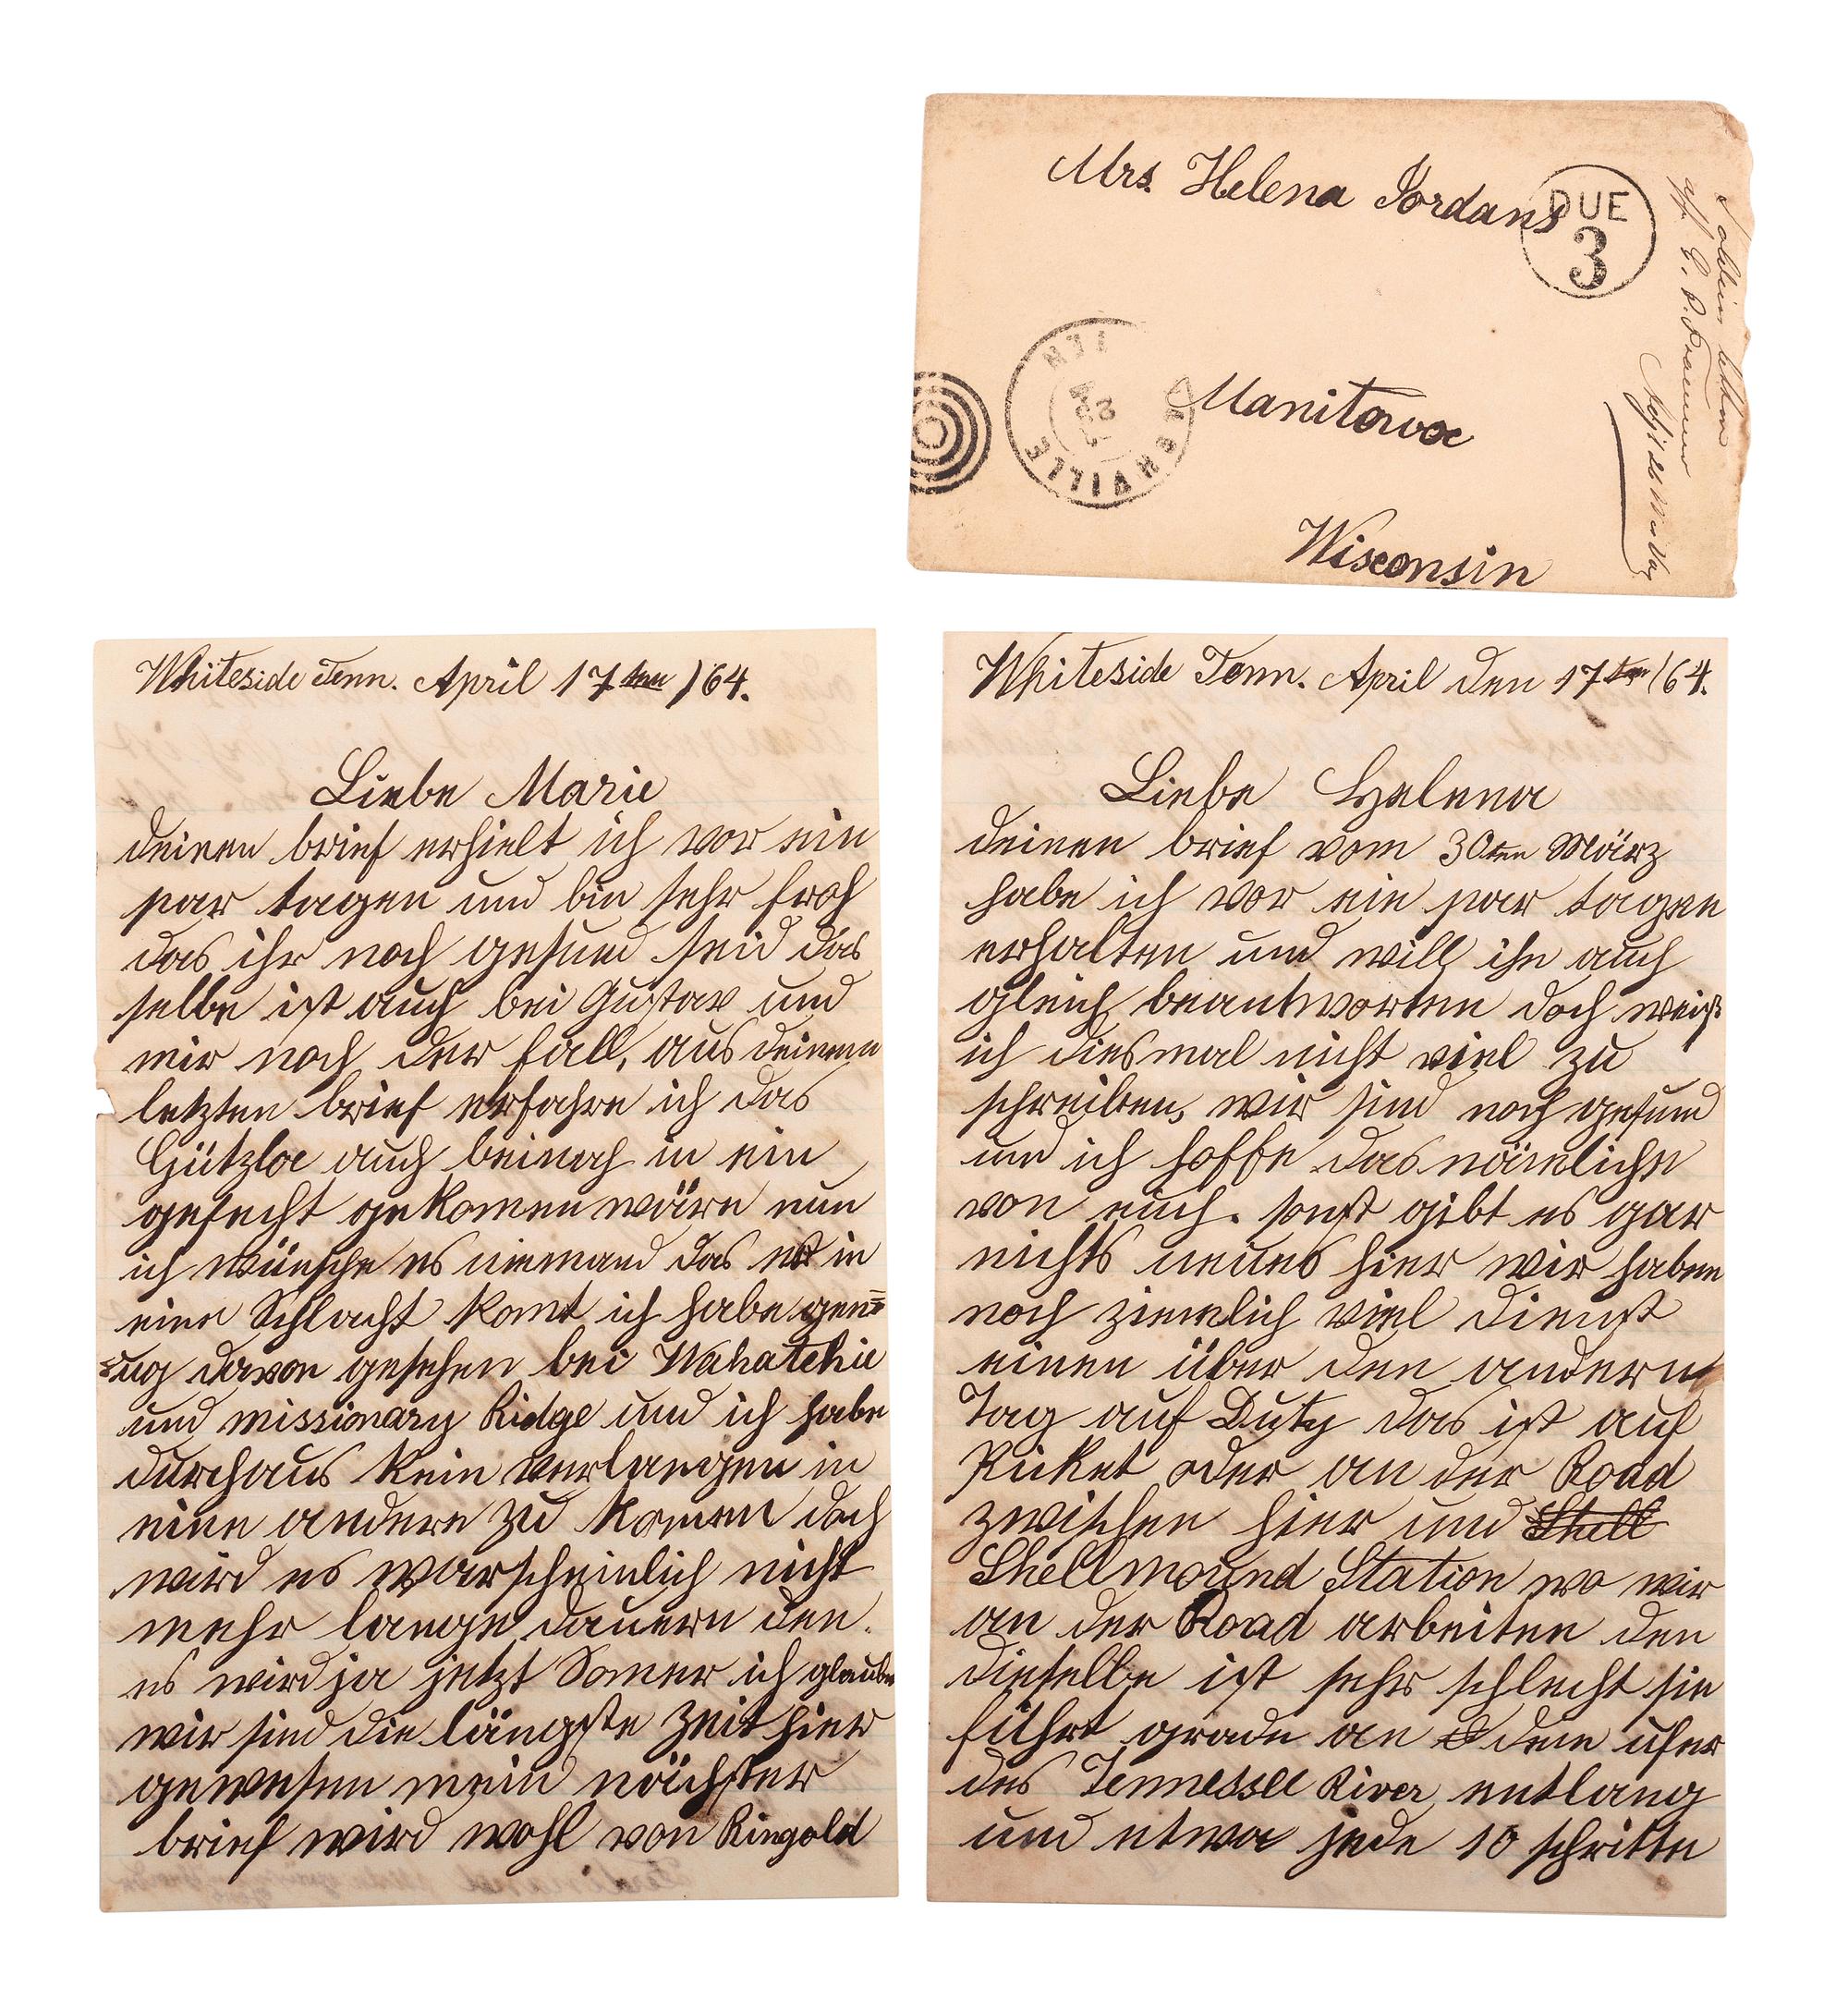 Mrs. Helena Jordans
DUE
3
Manitowoc
Wisconsin
Soldiers letter
TEN
Whiteside Tenn. April 17ten /64.
Liebe Marie
deinen brief erhielt ich vor ein
par tagen und bin sehr froh
das ihr noch gesund seid das
selbe ist auch bei Gustav und
mir noch der fall, aus deinem
letzten brief erfahre ich das
Gützloe auch beinah in ein
gefecht gekomen wäre nun
ich wünsche es niemand das er in
eine Schlacht komt ich habe gen=
=ug davon gesehen bei Wahatchie
und missionary Ridge und ich habe
durchaus kein verlangen in
eine andere zu komen doch
wird es warscheinlich nicht
mehr lange dauern den.
es wird ja jetzt Somer ich glaube
wir sind die längste Zeit hier
gewesen mein nächster
brief wird wohl von Ringold
Whiteside Tenn. April den 17ten /64.
Liebe Helena
deinen brief vom 30ten März
habe ich vor ein par tagen
erhalten und will ihn auch
gleich beantworten doch weiß
ich diesmal nicht viel zu
schreiben, wir sind noch gesund
und ich hoffe das nämliche
von euch. sonst gibt es gar
nichts neues hier wir haben
noch ziemlich viel dienst
einen über den andern
Tag auf Duty das ist auf
Picket oder an der Road
zwischen hier und Shell
Shellmound Station wo wir
an der Road arbeiten den
dieselbe ist sehr schlecht sie
führt grade an dem ufer
des Tennessee River entlang
und etwa jede 10 schritte